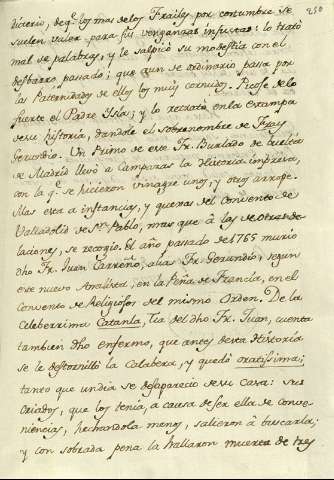 250
dicerio, de q.e los mas de los Frailes por costumbre se
suelen valer para sus venganzas injustas: lo trató
mal de palabras, y le salpicó su modestia con el
desbarro pasado; que aun de ordinario pasa por
las Paternidades de ellos los muy cornudos. Picose de lo
fuerte el Padre Ysla; y lo retrató en la estampa
de su historia, dandole el sobrenombre de Fray
Gerundio. Un Primo de este Fr. Burlado de buelta
de Madrid llevó a Campazas la Historia impresa,
con la q.e se hicieron vinagre unos, y otros arrope.
Mas esta a instancias, y quexas del Convento de
Valladolid de S.n Pablo, mas que â las de otras de-
laciones, se recogio. El año pasado de 1765 murio
dho Fr. Juan Carreño, alias Fr. Gerundio, segun
este nuevo Analista, en la Peña de Francia, en el
Convento de Religiosos del mismo Orden. De la
Celeberrima Catanla, tia del dho Fr. Juan, cuenta
tambien dho enfermo, que antes desta Historia
se le destornilló la Calabera, y quedó oratissima;
tanto que un dia se desaparecio de su Casa: sus
Criados, que los tenia, a causa de ser ella de conve-
niencias, hechandola menos, salieron â buscarla;
y con sobrada pena la hallaron muerta de tres